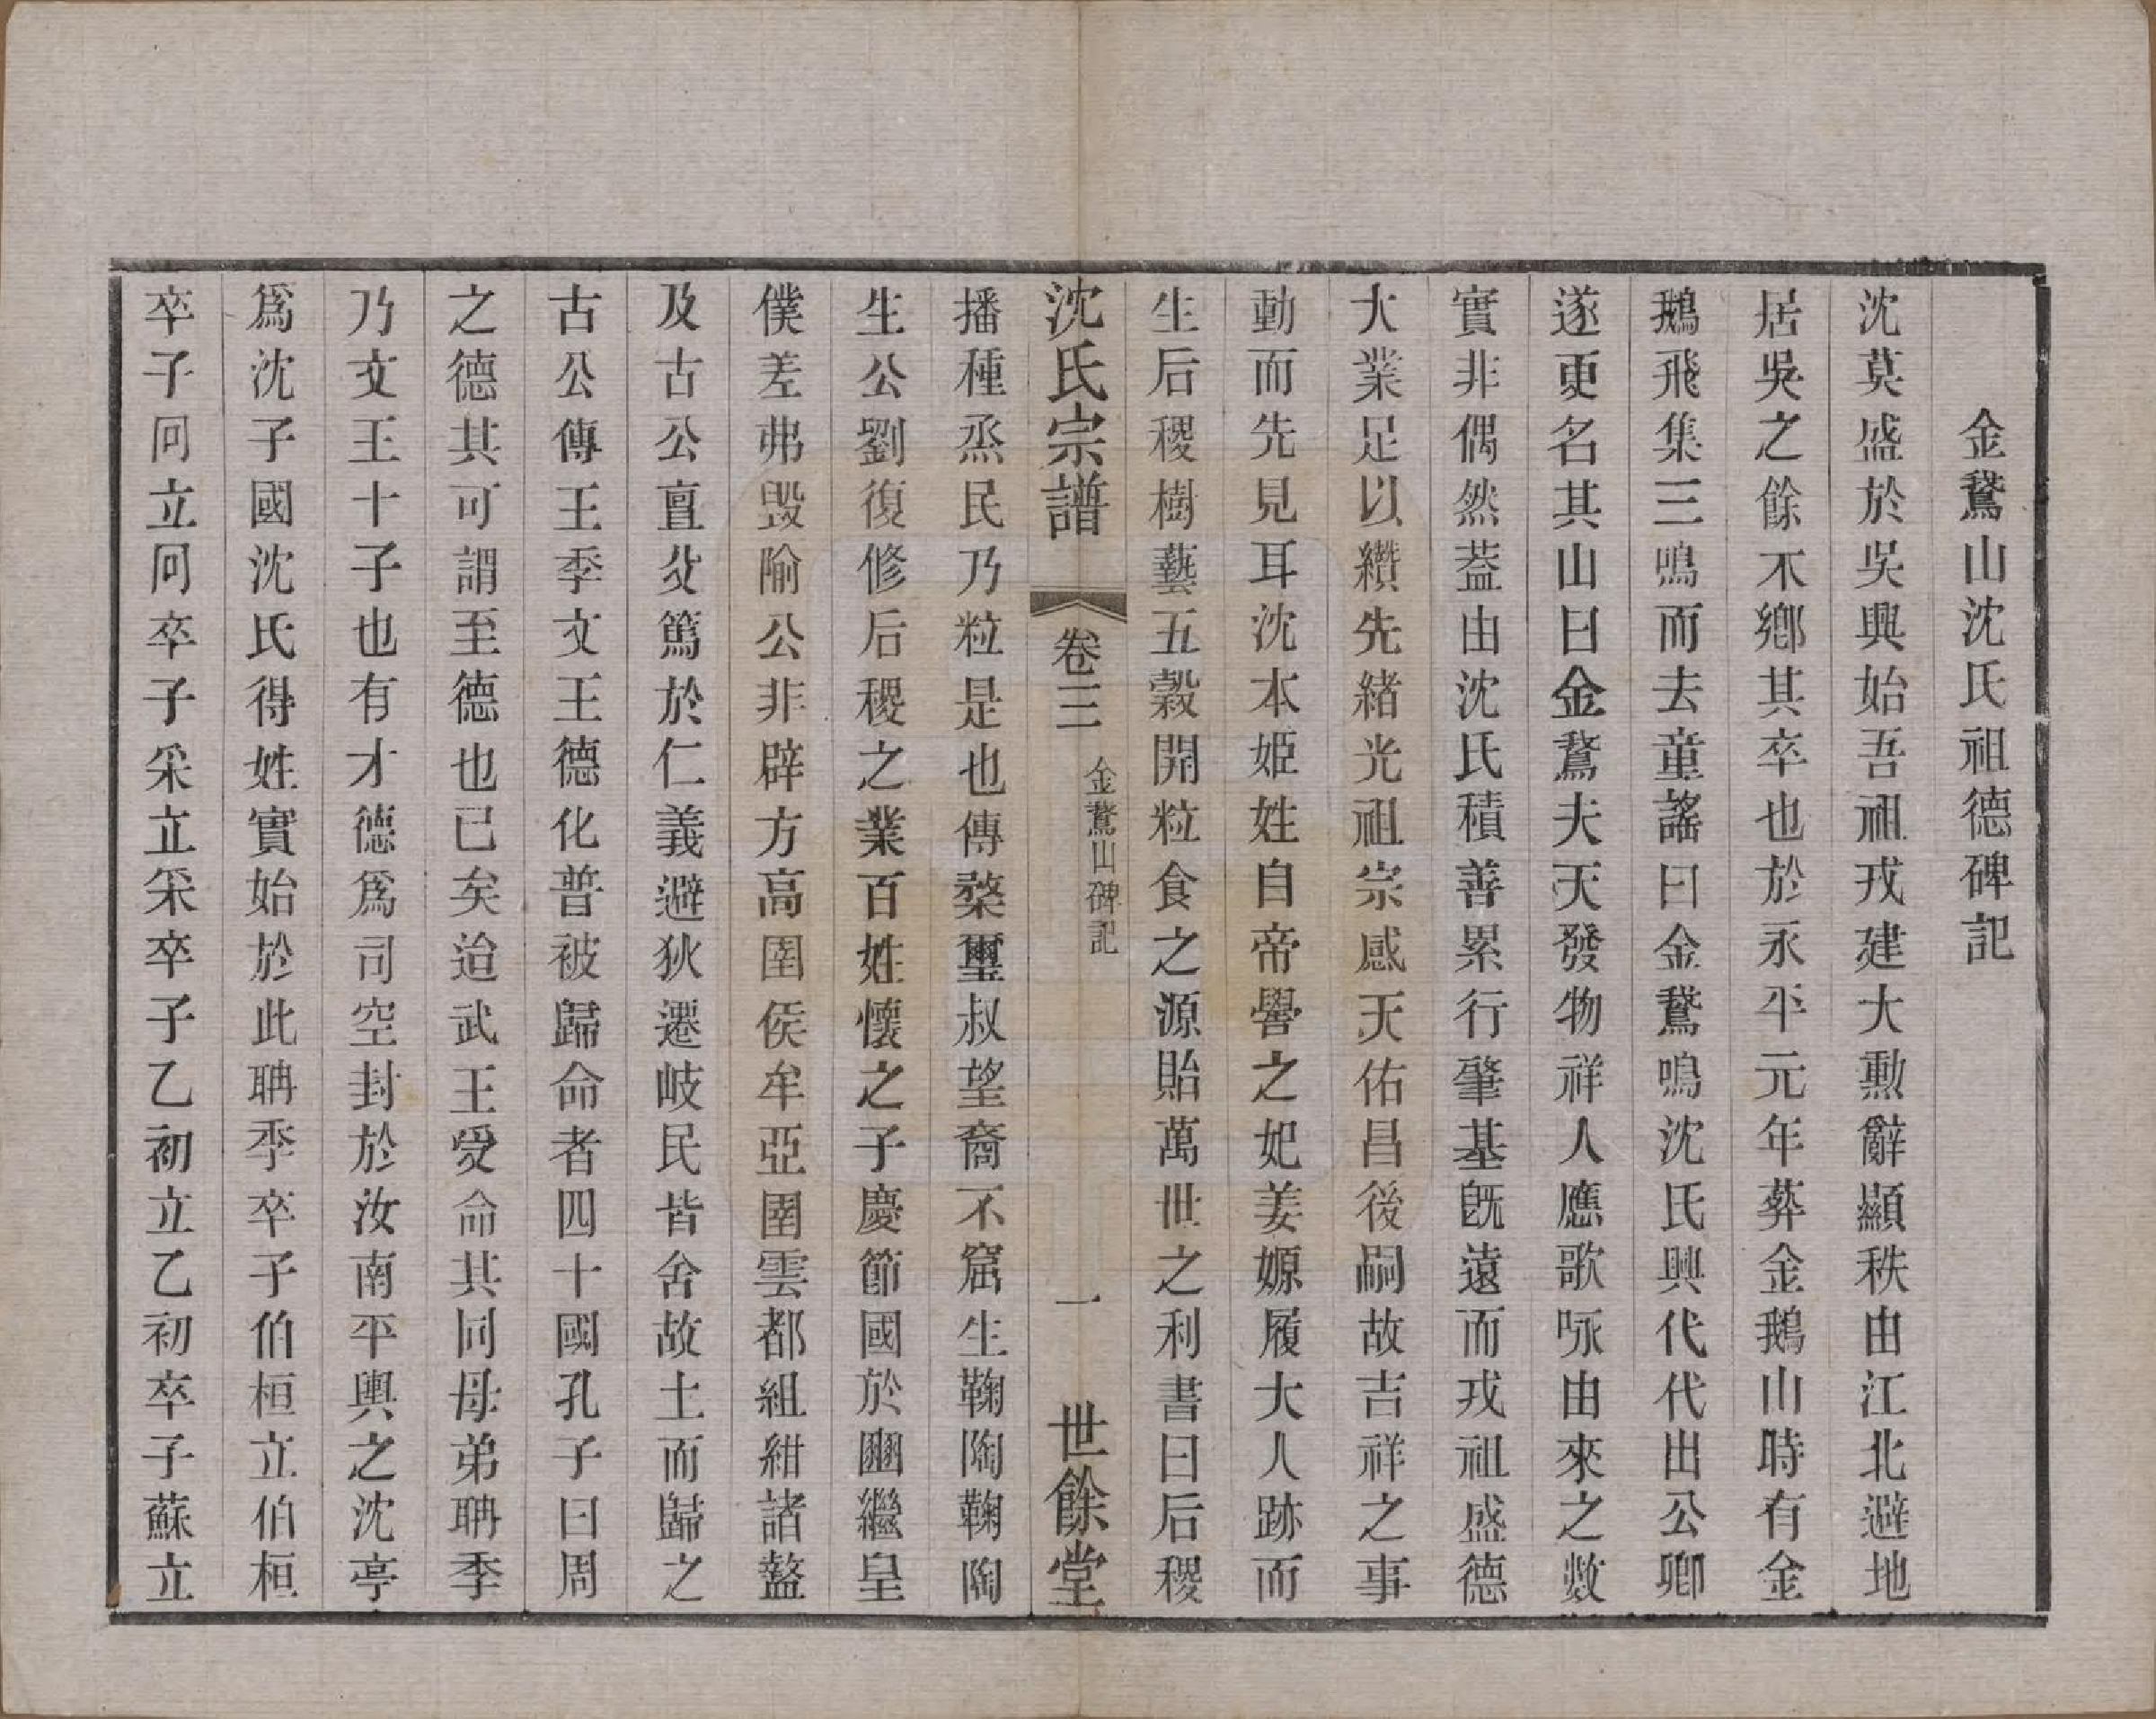 金鵞山沈氏祖德碑記
沈莫盛於吳興始吾祖戎建大勲辭顯秩由江北避地
居吳之餘不鄉其卒也於永平元年葬金鵝山時有金
鵝飛集三鳴而去童謠曰金鵞鳴沈氏興代代出公卿
遂更名其山曰金鵞夫天發物祥人應歌咏由來之數
實非偶然葢由沈氏積善累行肇基旣遠而戎祖盛德
大業足以纘先緒光祖宗感天佑昌後嗣故吉祥之事
動而先見耳沈本姬姓自帝嚳之妃姜嫄履大人跡而
生后稷樹藝五穀開粒食之源貽萬世之利書曰后稷
沈氏宗譜 卷三 金鵞山碑記 一 世餘堂
播種烝民乃粒是也傳漦璽叔望裔不窋生鞠陶鞠陶
生公劉復修后稷之業百姓懷之子慶節國於豳繼皇
僕差弗毀隃公非辟方高圉侯牟亞圉雲都組紺諸盩
及古公亶父篤於仁義避狄遷岐民皆舍故土而歸之
古公傳王季文王德化普被歸命者四十國孔子曰周
之德其可謂至德也已矣迨武王受命其同母弟聃季
乃文王十子也有才德爲司空封於汝南平輿之沈亭
爲沈子國沈氏得姓實始於此聃季卒子伯桓立伯桓
卒子冋立冋卒子采立采卒子乙初立乙初卒子蘇立